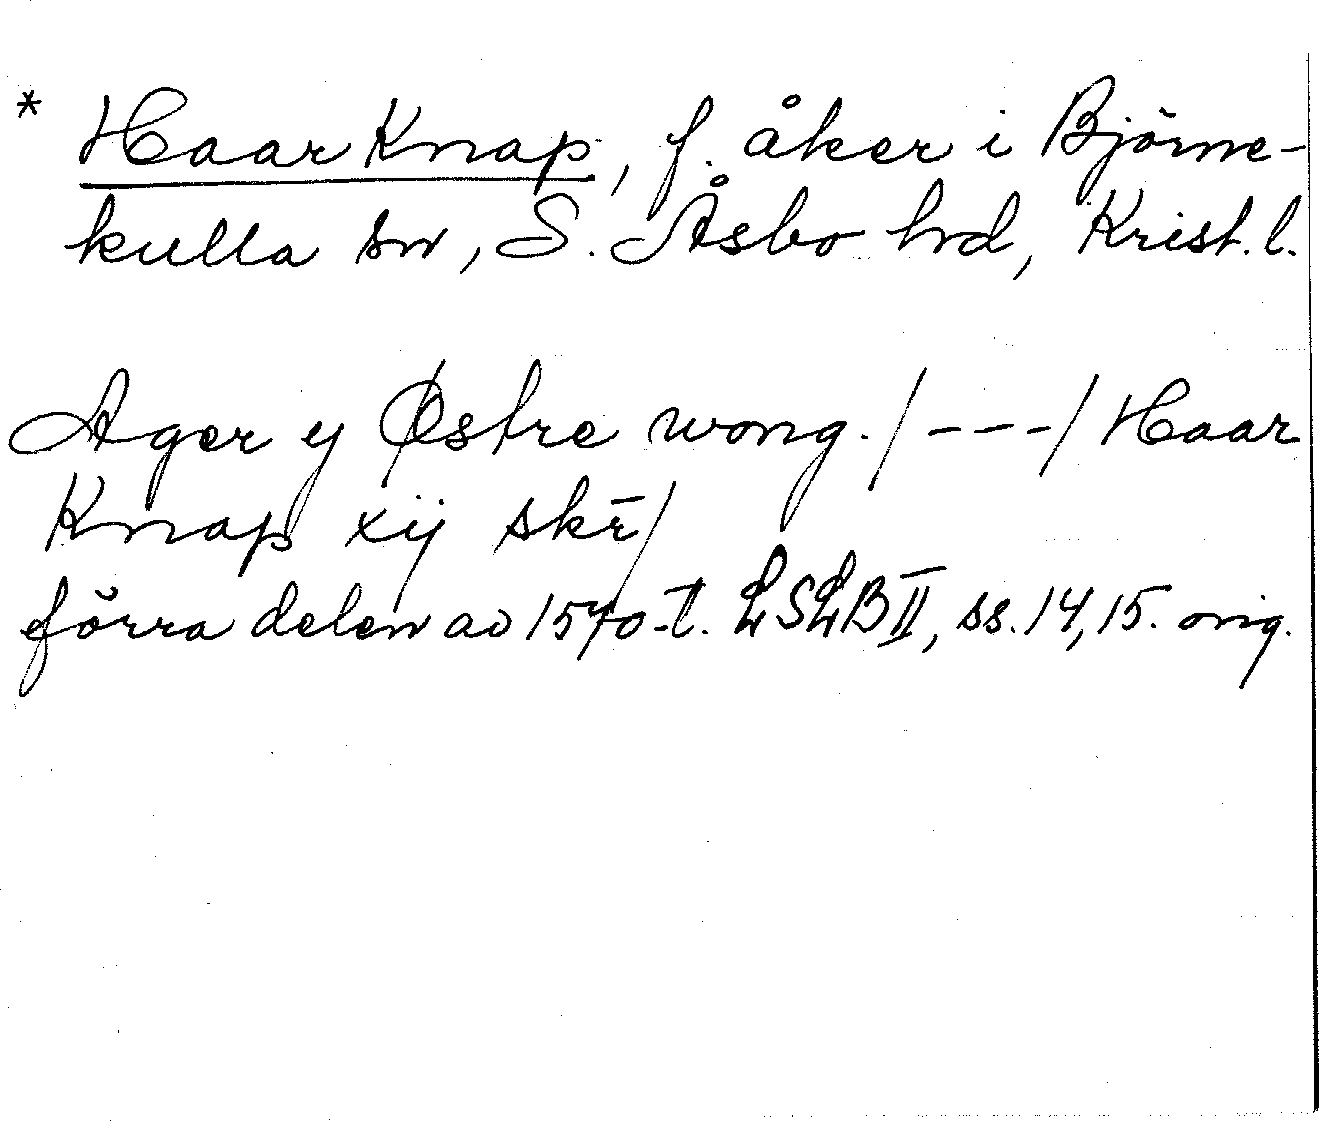 * Haar Knap, f. åker i Björne-
kulla sn, S. Åsbo hrd, Krist. l.
Ager y Østre wong. /---/ Haar
Knap xij skr̄/
förra delen av 1570-t. LSLB II, ss. 14, 15. orig.